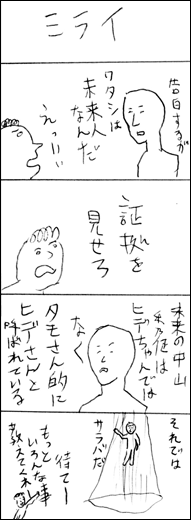 ミライ
告白するが
ワタシは
未来人
なんだ
えっいい
証拠を
見せろ
未来の中山
秀征は
ヒデちゃんでは
なく
タモさん的に
ヒデさんと
呼ばれている
それでは
サラバだ
待てー
もっと
いろんな事
教えてくれ